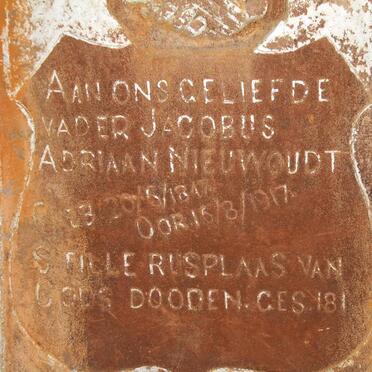 AAN ONS GELIEFDE
VADER JACOBUS
ADRIAAN NIEUWOUDT
OOR 15/8/1917.
STILLE RUSPLAAS VAN
GODS DOODEN. GES. 181